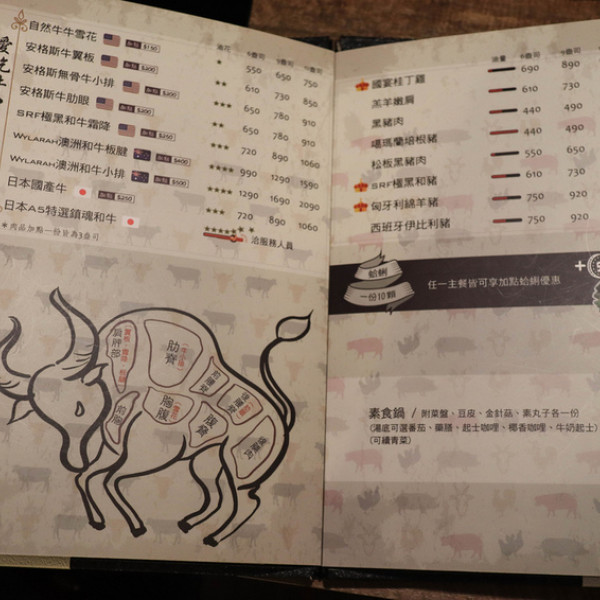 自然牛牛雪花 加點 $150 ★ 550 650 750
安格斯牛翼板 加點 $200 ★ 610 730 850
安格斯無骨牛小排 加點 $200 ★★★ 650 780 910
安格斯牛肋眼 加點 $200 ★★ 650 780 910
SRF極黑和牛霜降 加點 $250 ★★★ 720 890 1060
WYLARAH澳洲和牛板腱 加點 $400 ★★★★ 990 1290 1590
WYLARAH澳洲和牛小排 加點 $500 ★★★★ 1290 1690 2090
日本國產牛 加點 $250 ★★★ 720 890 1060
日本A5特選鎮魂和牛 ★★★★★ 洽服務人員
*肉品加點一份皆為3盎司
肩胛部
肋脊
胸腹
腹脅
油量 6盎司 9盎司
國宴桂丁雞 690 890
羔羊嫩肩 610 730
黑豬肉 440 490
噶瑪蘭培根豬 440 490
松板黑豬肉 550 650
SRF極黑和豬 610 730
匈牙利綿羊豬 750 920
西班牙伊比利豬 750 920
蛤蜊
一份10顆
任一主餐皆可享加點蛤蜊優惠 +
素食鍋 / 附菜盤、豆皮、金針菇、素丸子各一份
(湯底可選番茄、藥膳、起士咖哩、椰香咖哩、牛奶起士)
(可續青菜)